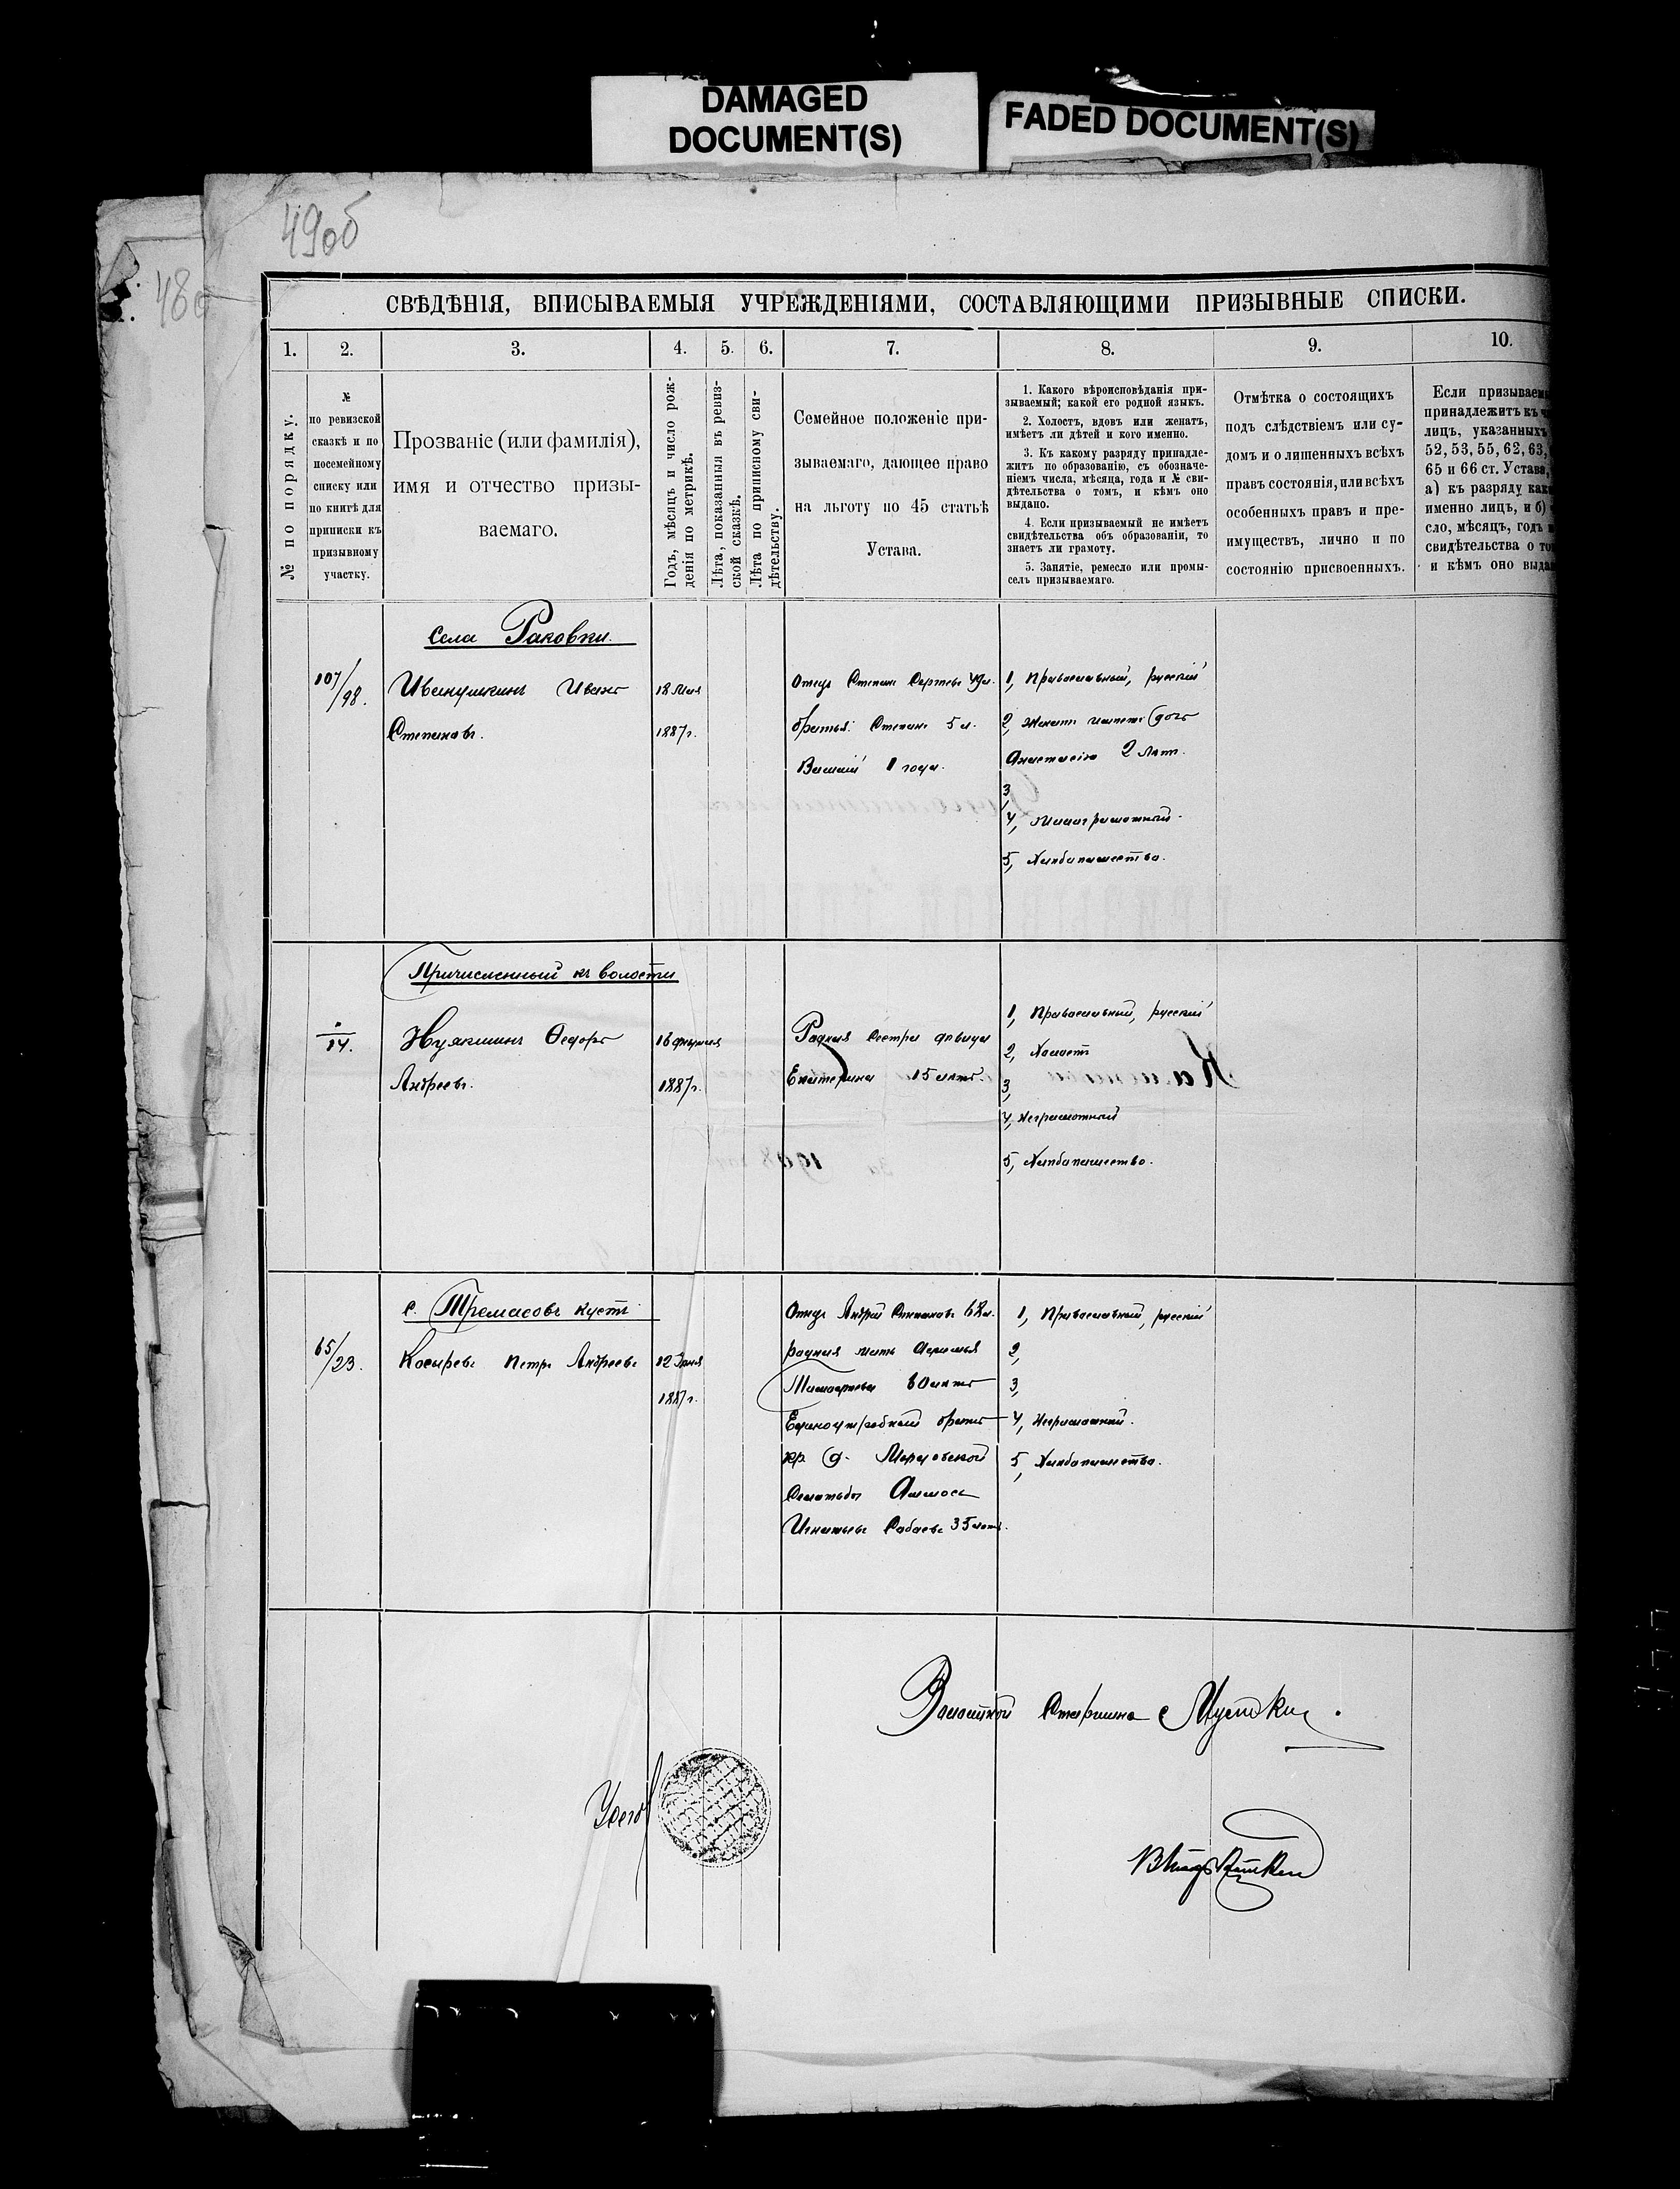 DAMAGED
DOCUMENT(S)
FADED DOCUMENT(S)
49об
48
СВѢДѢНІЯ, ВПИСЫВАЕМЫЯ УЧРЕЖДЕНІЯМИ, СОСТАВЛЯЮЩИМИ ПРИЗЫВНЫЕ СПИСКИ.
1. 2. 3. 4. 5. 6. 7. 8. 9. 10.
№ по порядку.
№
по ревизской
сказкѣ и по
посемейному
списку или
по книгѣ для
приписки къ
призывному
участку.
Прозваніе (или фамилія),
имя и отчество призы-
ваемаго.
Годъ, мѣсяцъ и число рож-
денія по метрикѣ.
Лѣта, показанныя въ ревиз-
ской сказкѣ.
Лѣта по приписному сви-
дѣтельству.
Семейное положеніе при-
зываемаго, дающее право
на льготу по 45 статьѣ
Устава.
1. Какого вѣроисповѣданія при-
зываемый; какой его родной языкъ.
2. Холостъ, вдовъ или женатъ,
имѣетъ ли дѣтей и кого именно.
3. Къ какому разряду принадле-
житъ по образованію, съ обозначе-
ніемъ числа, мѣсяца, года и № сви-
дѣтельства о томъ, и кѣмъ оно
выдано.
4. Если призываемый не имѣетъ
свидѣтельства объ образованіи, то
знаетъ ли грамоту.
5. Занятіе, ремесло или промы-
селъ призываемаго.
Отмѣтка о состоящихъ
подъ слѣдствіемъ или су-
домъ и о лишенныхъ всѣхъ
правъ состоянія, или всѣхъ
особенныхъ правъ и пре-
имуществъ, лично и по
состоянію присвоенныхъ.
Если призываем
принадлежитъ къ ч
лицъ, указанныхъ
52, 53, 55, 62, 63,
65 и 66 ст. Устава,
а) къ разряду как
именно лицъ, и б)
сло, мѣсяцъ, годъ
свидѣтельства о то
и кѣмъ оно выда
Села Раковки.
107/98.
Иванушкинъ Иванъ
Степановъ.
18 Мая
1887г.
Отецъ Степанъ Сергѣевъ 49л.
братья: Степанъ 5 л.
Василій 1 года.
1, Православный, русскій
2, Женатъ имѣетъ дочь
Анастасію 2 лѣтъ.
3,
4, Малограмотный.
5, Хлѣбопашество.
Причисленный къ волости
14.
Нуякшинъ Ѳедоръ
Андреевъ.
1887г.
Родная сестра дѣвица
Екатерина 15 лѣтъ.
1, Православный, русскій
2, Холостъ
3,
4, Неграмотный
5, Хлѣбопашество.
с. Тремасовъ кустъ
65/23.
Косыревъ Петръ Андреевъ
12 Іюня
1887г.
Отецъ Андрей Степановъ 62л.
родная мать
60 лѣтъ
Единоутробный братъ
кр. д.
Аммосъ
Игнатьевъ Сабаевъ 35 лѣтъ.
1, Православный, русскій
2,
3,
4, Неграмотный.
5, Хлѣбопашество.
Волостной Старшина